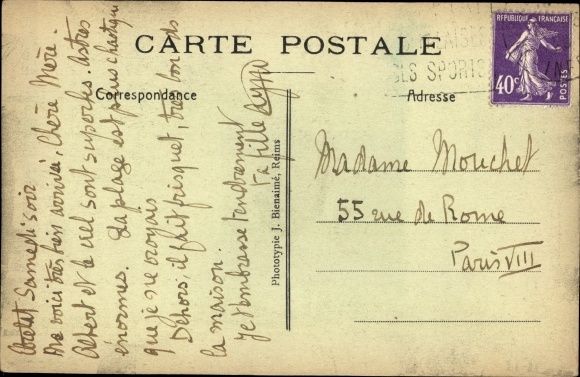 CARTE POSTALE
Correspondance
Adresse
RÉPUBLIQUE FRANÇAISE
40c
POSTES
SPORTS
Samedi soir
Me voici très bien arrivée, Chère Mère.
et le ciel sont superbes. astres
énormes. La plage est plus chaotique
que je ne croyais
Dehors, il fait frisquet, très bon ds
la maison.
Je t'embrasse tendrement
Ta fille
Phototypie J. Bienaimé, Reims
Madame Mouchet
55 rue de Rome
Paris VIII